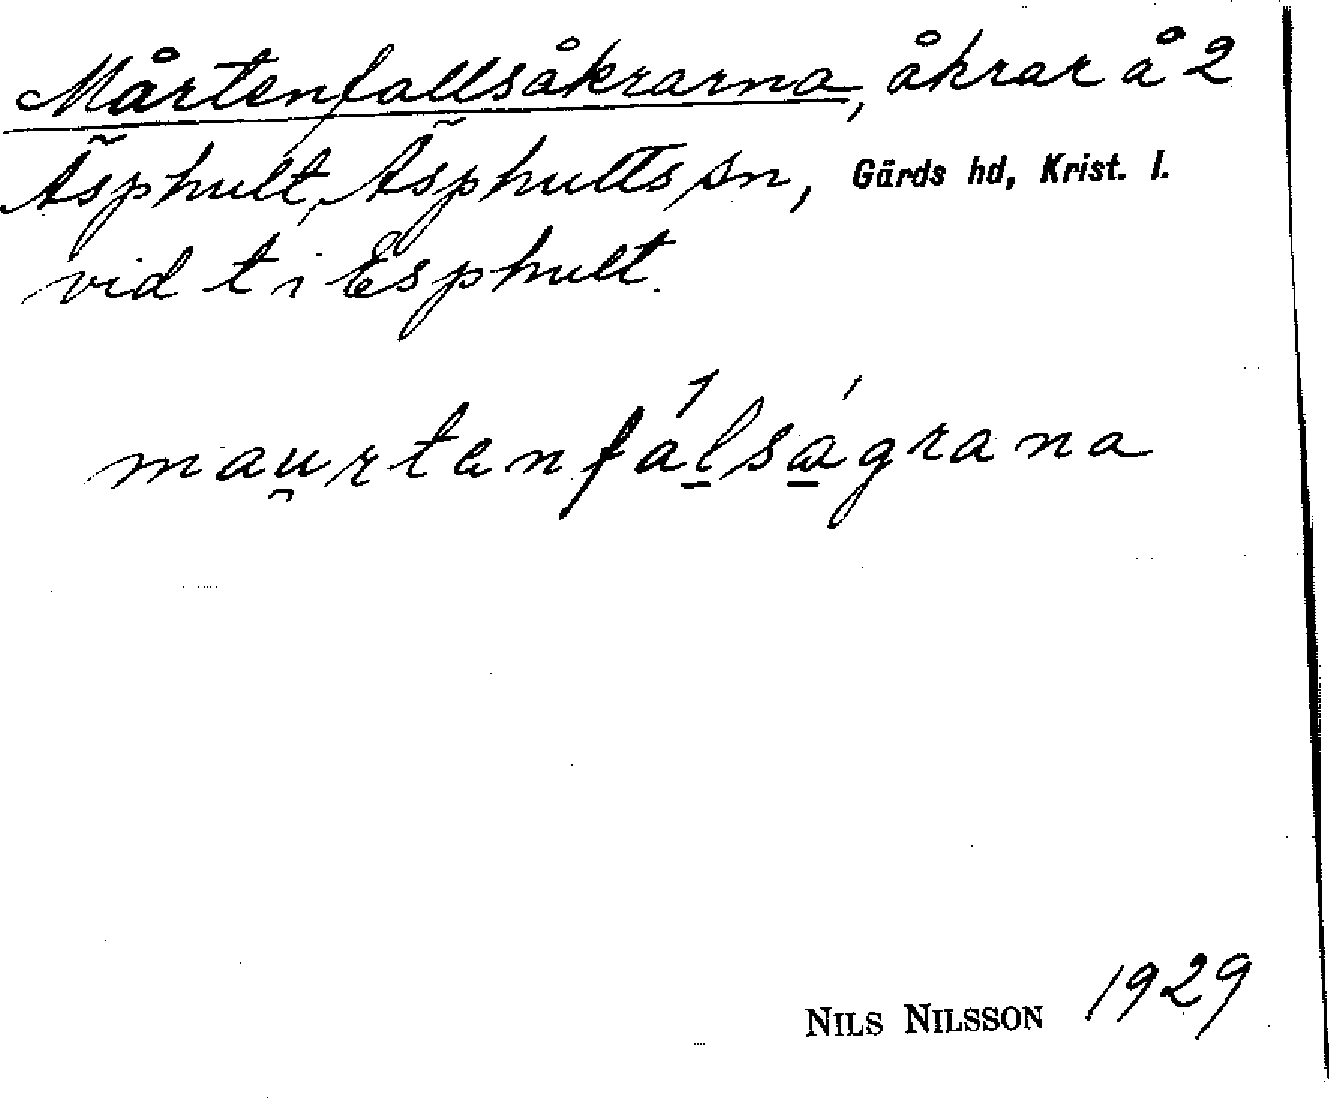 Mårtenfallsåkrarna, åkrar å 2
Äsphult, Äsphults sn, Gärds hd, Krist. l.
vid t i Esphult.
mau̯rtenfál̠sa̠̍grana
NILS NILSSON 1929